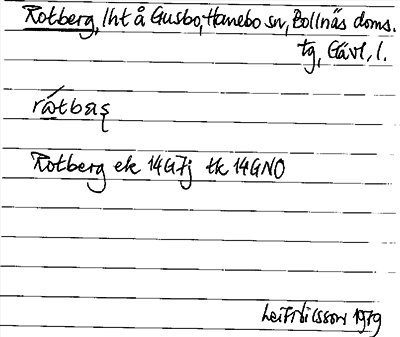 Rotberg, lht å Gusbo, Hanebo sn, Bollnäs doms.
tg, Gävl. l.
rátbaʂ
Rotberg ek 14G7j tk 14GNO
Leif Nilsson 1979